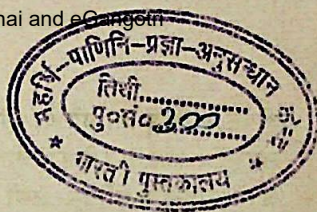 nai and eGangotri
महर्षि-पाणिनि-प्रज्ञा-अनुसन्धान
तिथी..............
पु०सं० 300
भारती पुस्तकालय